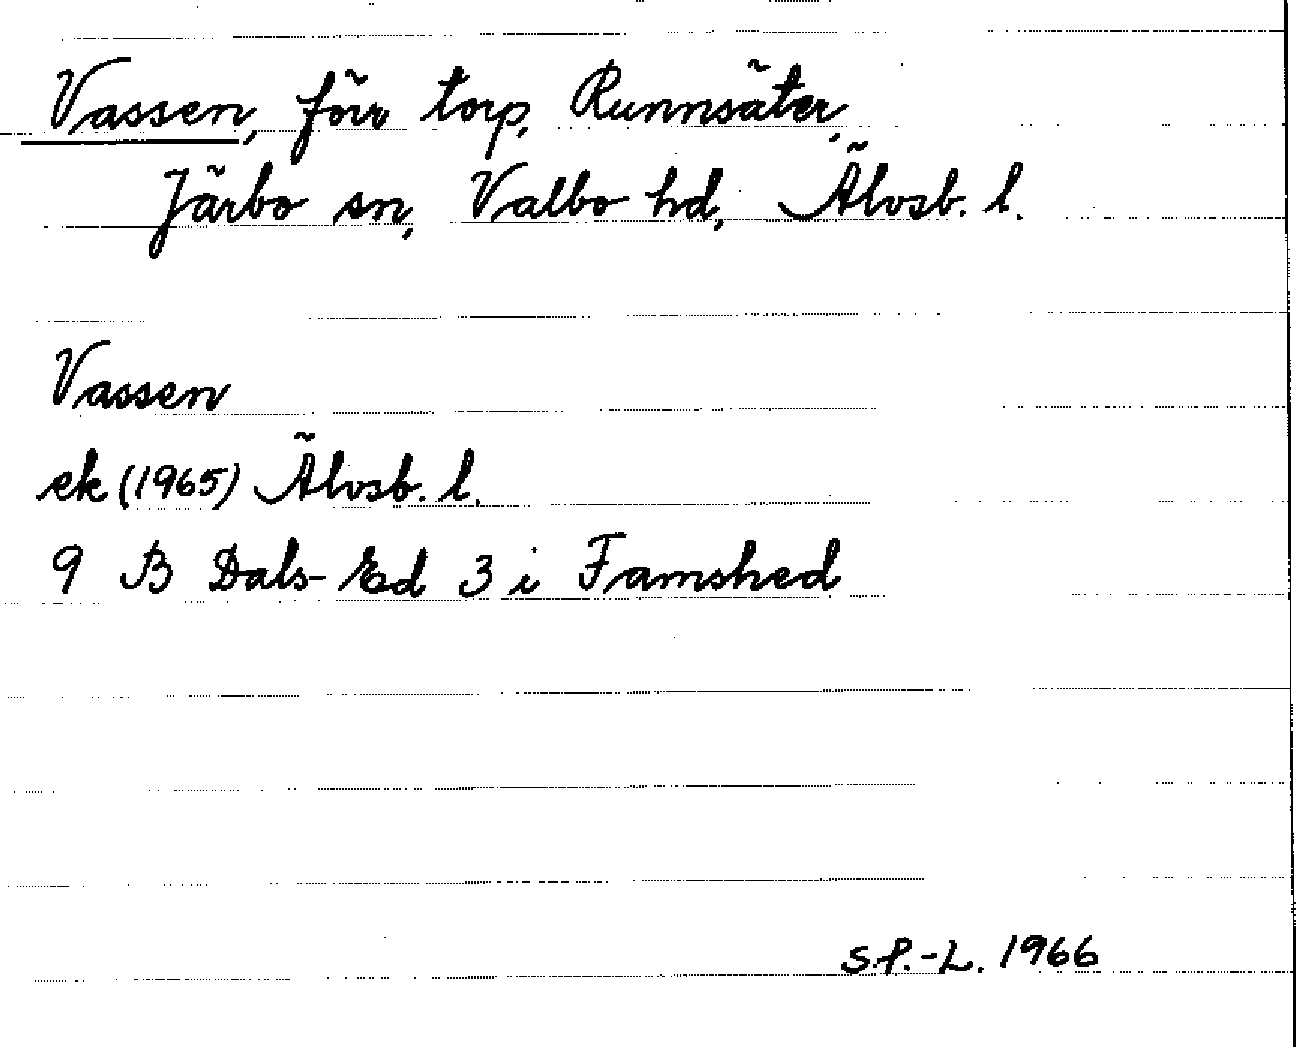 Vassen, förr torp, Runnsäter,
Järbo sn, Valbo hd, Älvsb. l.
Vassen
ek (1965) Älvsb. l.
9 B Dals-Ed 3 i Famshed
S.P.-L. 1966